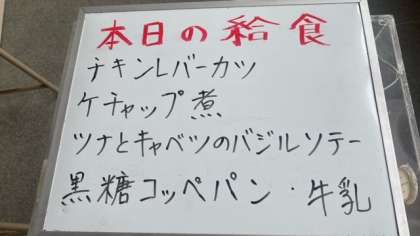 本日の給食
チキンレバーカツ
ケチャップ煮
ツナとキャベツのバジルソテー
黒糖コッペパン・牛乳